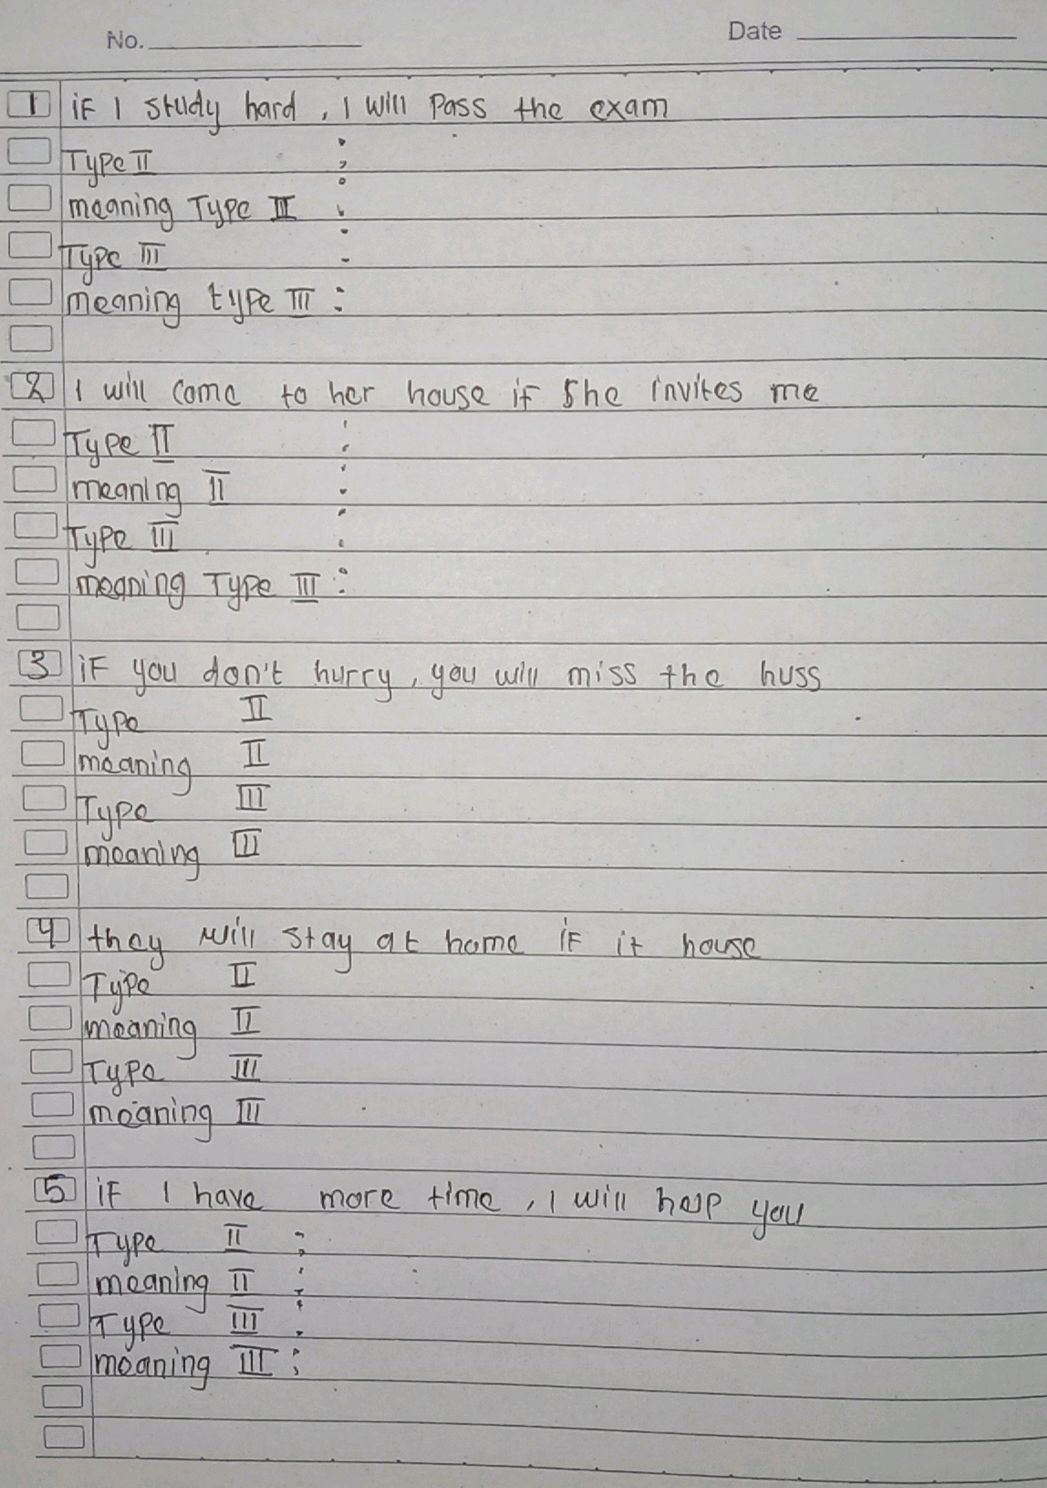 No. Date
1 if I study hard, I will Pass the exam
Type II :
meaning Type II :
Type III :
meaning type III :
2 I will come to her house if she invites me
Type II :
meaning II :
Type III :
meaning Type III :
3 if you don't hurry, you will miss the huss
Type II
meaning II
Type III
meaning III
4 they will stay at home if it house
Type II
meaning II
Type III
meaning III
5 if I have more time, I will help you
Type II :
meaning II :
Type III :
meaning III :